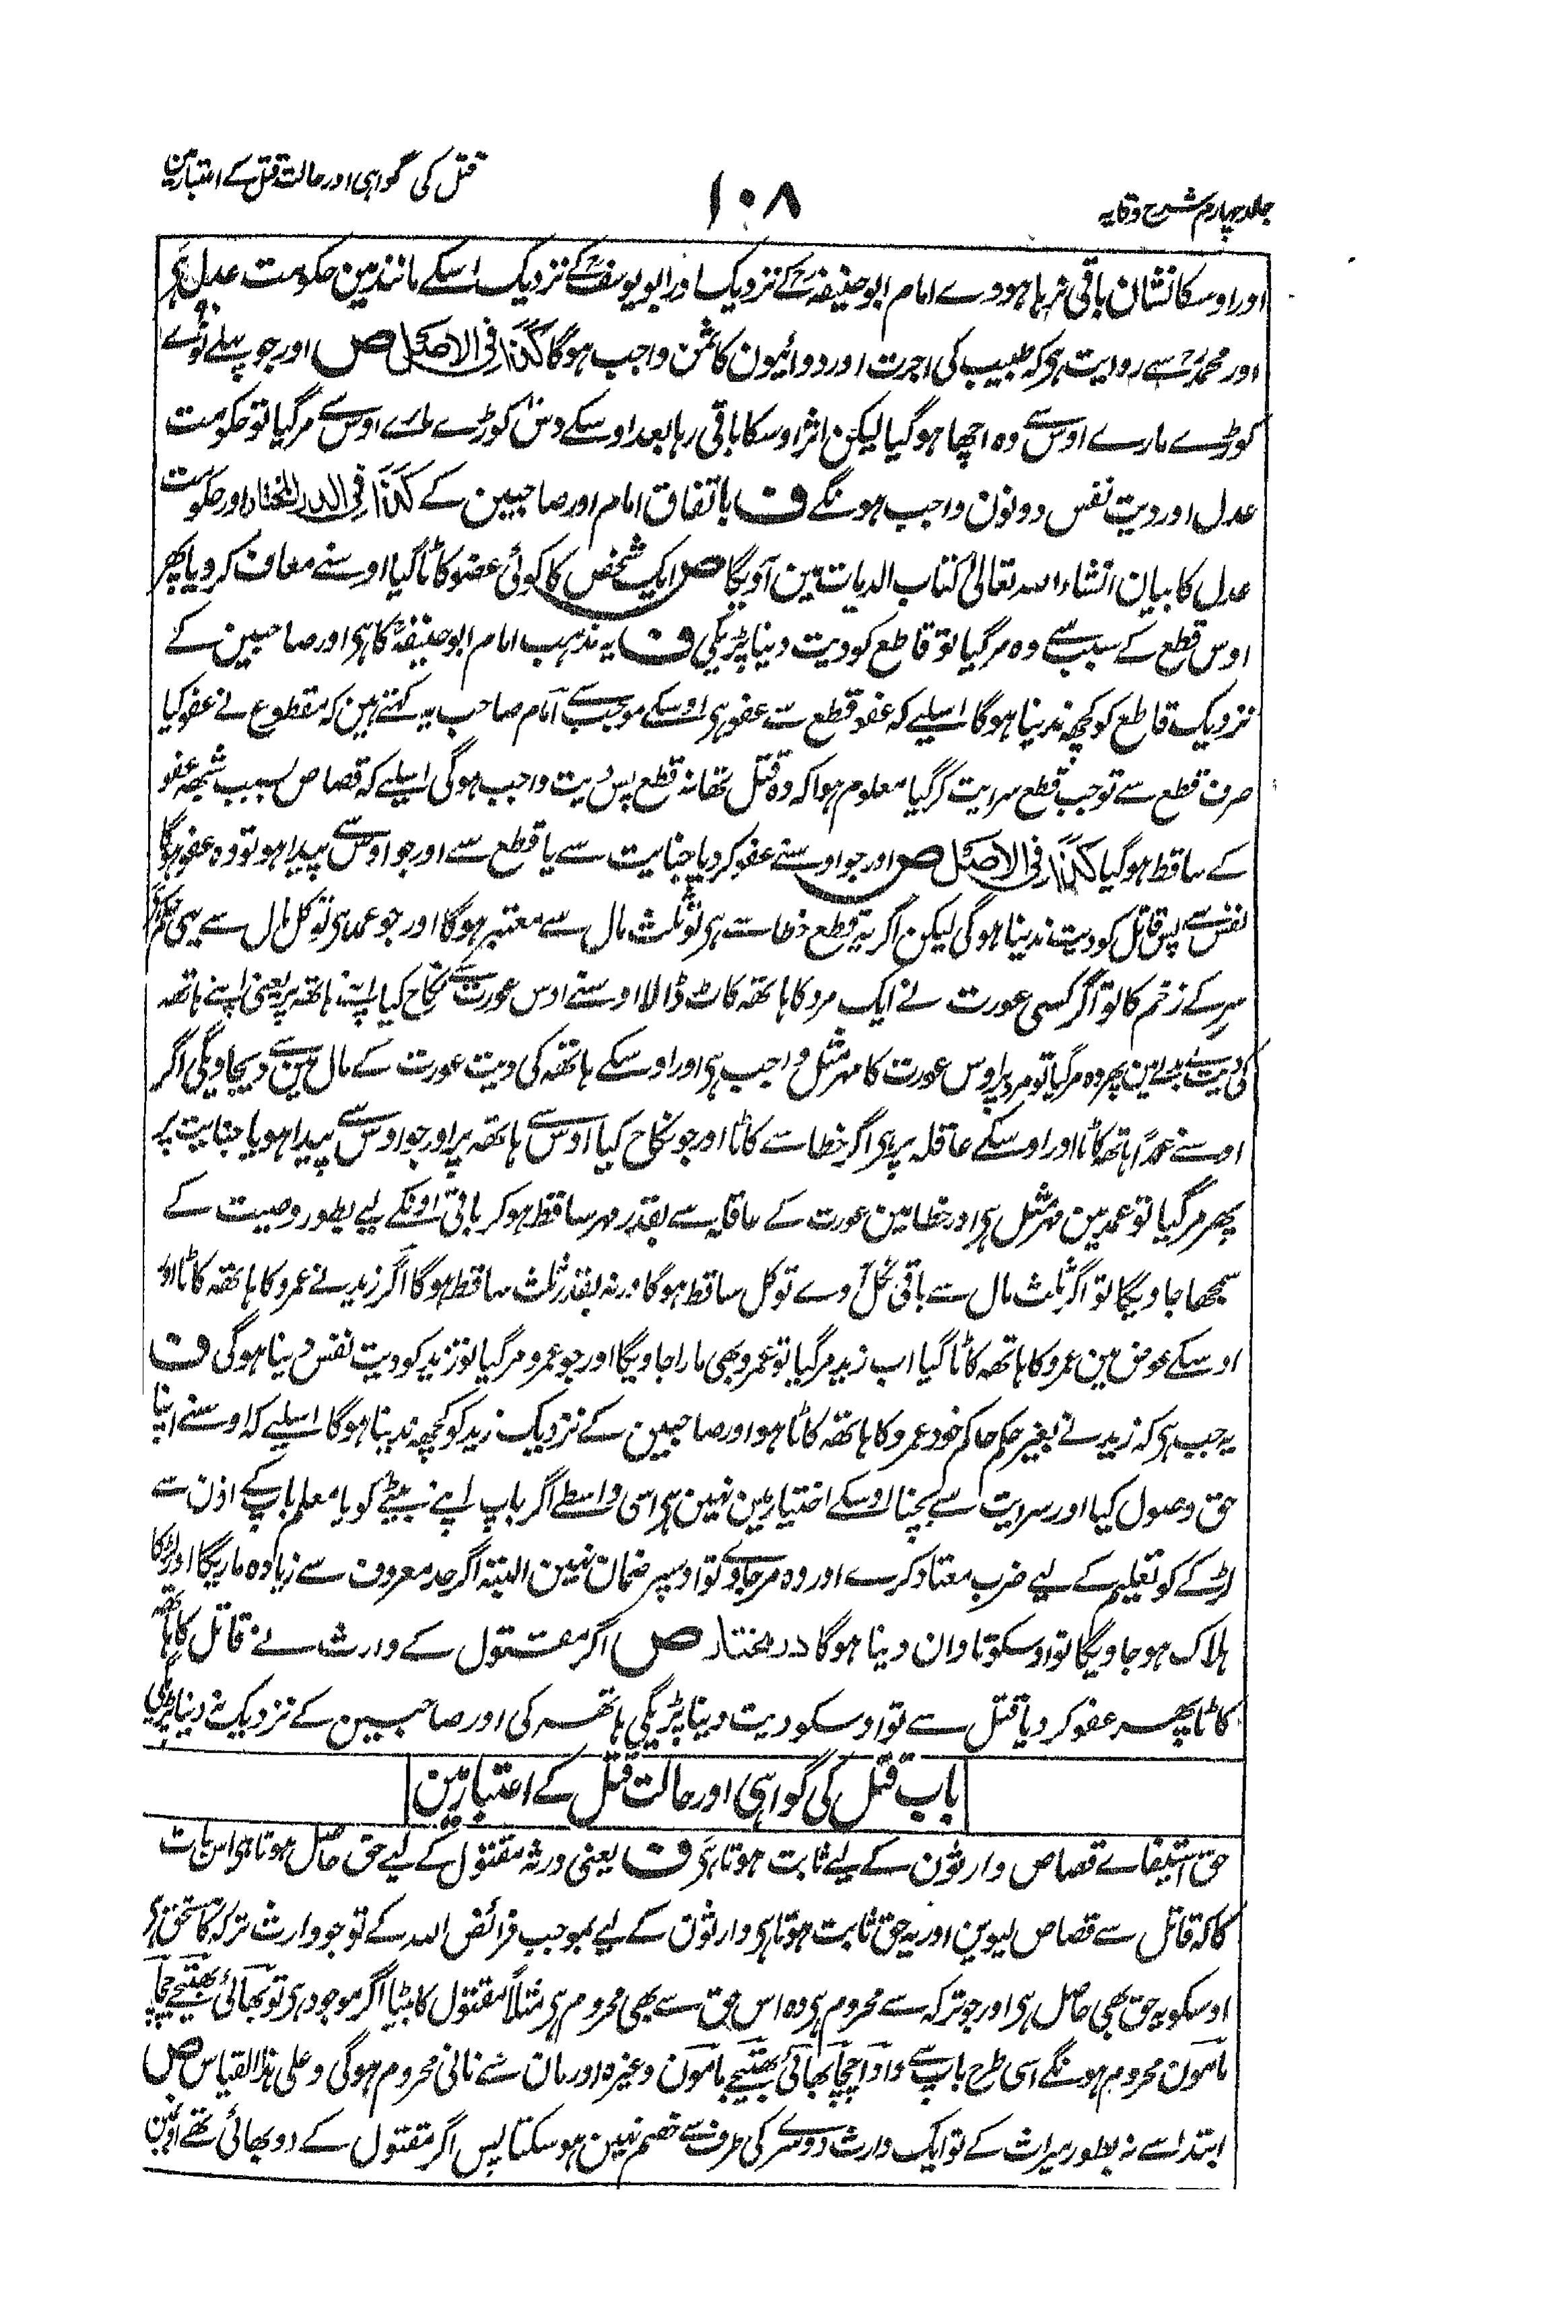 جلد چہارم شرح وقایہ
۱۰۸
قتل کی گواہی اور حالت قتل کے اعتبار مین
اور اوسکا نشان باقی نرہا ہووے امام ابوحنیفہؒ کے نزدیک اور ابویوسفؒ کے نزدیک اسکے مانند مین حکومت عدل ہی
اور محمدؒ سے روایت ہی کہ طبیب کی اجرت اور دوائیون کا ثمن واجب ہوگا کَذَا فِی الاَصْل ص اور جو پہلے نوّے
کوڑے مارے اوس سے وہ اچھا ہوگیا لیکن اثر اوسکا باقی رہا بعد اوسکے دس کوڑے مارے اوس سے مرگیا تو حکومت
عدل اور دیت نفس دونون واجب ہونگے ف باتفاق امام اور صاحبین کے کَذَا فِی الدر المختار اور حکومت
عدل کا بیان انشاء اللہ تعالیٰ کتاب الدیات مین آویگا ص ایک شخص کا کوئی عضو کاٹا گیا اوسنے معاف کردیا پھر
اوس قطع کے سبب سے وہ مرگیا تو قاطع کو دیت دینا پڑیگی ف یہ مذہب امام ابوحنیفہؒ کا ہی اور صاحبین کے
نزدیک قاطع کو کچھ ندینا ہوگا اسلیے کہ عفو قطع سے عفو ہی اوسکے موجب سے امام صاحب یہ کہتے ہین کہ مقطوع نے عفو کیا
صرف قطع سے تو جب قطع سرایت کر گیا معلوم ہوا کہ وہ قتل تھا نہ قطع پس دیت واجب ہوگی اسلیے کہ قصاص بسبب شبہہ عفو
کے ساقط ہوگیا کَذَا فِی الاَصْل ص اور جو اوسنے عفو کردیا جنایت سے یا قطع سے اور جو اوس سے پیدا ہو تو وہ عفو ہوگا
نفس سے پس قاتل کو دیت ندینا ہوگی لیکن اگر یہ قطع خطا سے ہی تو ثلث مال سے معتبر ہوگا اور جو عمدا ہی تو کل مال سے یہی حکم ہی
سر کے زخم کا تو اگر کسی عورت نے ایک مرد کا ہاتھ کاٹ ڈالا اوسنے اوس عورت سے نکاح کیا اپنے ہاتھ پر یعنی اپنے ہاتھ
کی دیت کے بدلے مین پھر وہ مرگیا تو مرد پر اوس عورت کا مہر مثل واجب ہی اور اوسکے ہاتھ کی دیت عورت کے مال مین سے دیجاویگی اگر
اوسنے عمدًا ہاتھ کاٹا اور اوسکے عاقلہ پر ہی اگر خطا سے کاٹا اور جو نکاح کیا اوس سے ہاتھ پر اور جو اوس سے پیدا ہو یا جنایت پر
پھر مرگیا تو عمد مین مہر مثل ہی اور خطا مین عورت کے عاقلہ سے بقدر مہر ساقط ہوکر باقی اونکے لیے بطور وصیت کے
سمجھا جاویگا تو اگر ثلث مال سے باقی نکل آوے تو کل ساقط ہوگا ورنہ بقدر ثلث ساقط ہوگا اگر زید نے عمرو کا ہاتھ کاٹا اور
اوسکے عوض مین عمرو کا ہاتھ کاٹا گیا اب زید مرگیا تو عمرو بھی مارا جاویگا اور جو عمرو مرگیا تو زید کو دیت نفس دینا ہوگی ف
یہ جب ہی کہ زید نے بغیر حکم حاکم خود عمرو کا ہاتھ کاٹا ہو اور صاحبین کے نزدیک زید کو کچھ ندینا ہوگا اسلیے کہ اوسنے اپنا
حق وصول کیا اور سرایت سے بچنا اوسکے اختیار مین نہین ہی اسی واسطے اگر باپ اپنے بیٹے کو یا معلم باپ کے اذن سے
لڑکے کو تعلیم کے لیے ضرب معتاد کرے اور وہ مرجاوے تو اوسپر ضمان نہین البتہ اگر حد معروف سے زیادہ ماریگا اور لڑکا
ہلاک ہوجاویگا تو اوسکو تاوان دینا ہوگا در مختار ص اگر مقتول کے وارث نے قاتل کا ہاتھ
کاٹا پھر عفو کردیا قتل سے تو اوسکو دیت دینا پڑیگی ہاتھ کی اور صاحبین کے نزدیک نہ دینا پڑیگی
باب قتل کی گواہی اور حالت قتل کے اعتبار مین
حق استیفاے قصاص وارثون کے لیے ثابت ہوتا ہی ف یعنی ورثہ مقتول کے لیے حق حاصل ہوتا ہی اس بات
کا کہ قاتل سے قصاص لیوین اور یہ حق ثابت ہوتا ہی وارثون کے لیے بموجب فرائض اللہ کے تو جو وارث ترکہ کا مستحق ہی
اوسکو یہ حق بھی حاصل ہی اور جو ترکہ سے محروم ہی وہ اس حق سے بھی محروم ہی مثلاً مقتول کا بیٹا اگر موجود ہی تو بھائی بھتیجے چچا
مامون محروم ہونگے اسی طرح باپ سے دادا چچا بھائی بھتیجے مامون وغیرہ اور مان سے نانی محروم ہوگی وعلی ہذا القیاس ص
ابتدا سے نہ بطور میراث کے تو ایک وارث دوسرے کی طرف سے خصم نہین ہوسکتا پس اگر مقتول کے دو بھائی تھے اونمین